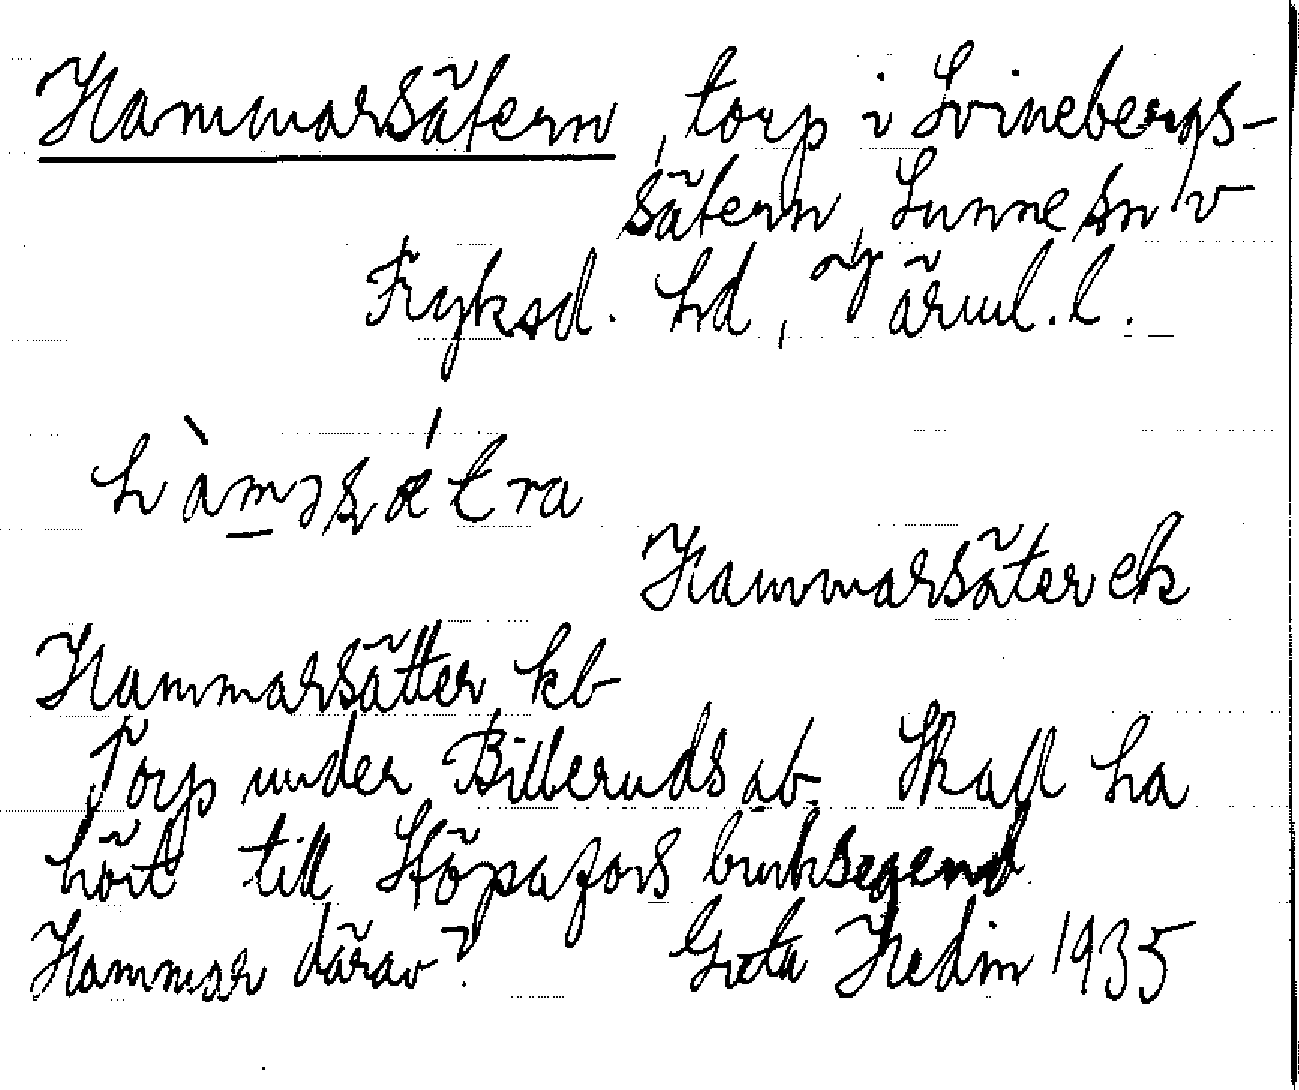 Hammarsätern, torp i Svinebergs-
sätern, Sunne sn, v
Fryksd. hd, Värml. l.
hàmasǽtra
Hammarsäter ek
Hammarsätter kb
Torp under Billeruds ab. Skall ha
hört till Stöpafors bruksegend.
Hammar därav? Greta Hedin 1935